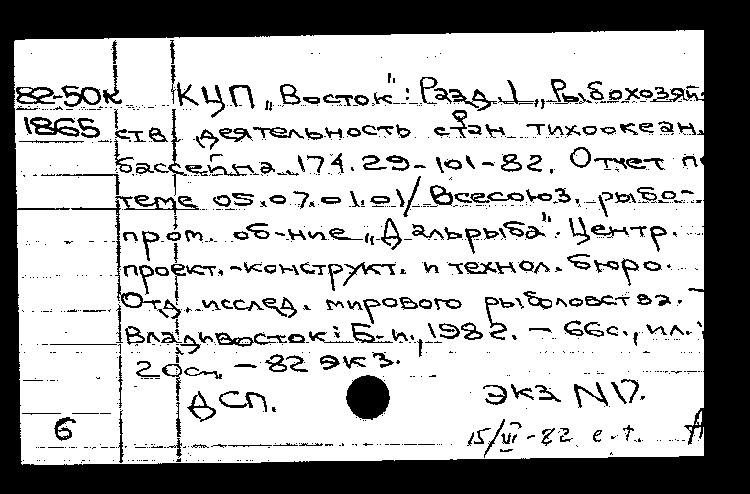 82-50к КЦП „Восток": Разд. 1 „Рыбохозяй-
1865 ств. деятельность стран тихоокеан.
бассейна. 174.29-101-82. Отчет по
теме 05.07.01.01/ Всесоюз. рыбо-
пром. об-ние „Дальрыба". Центр.
проект.-конструкт. и технол. бюро.
Отд. исслед. мирового рыболовства. -
Владивосток: Б.и., 1982. - 66с., ил.;
20см. - 82 экз.
ДСП. экз N 17.
6 15/VI-82 е.т. А